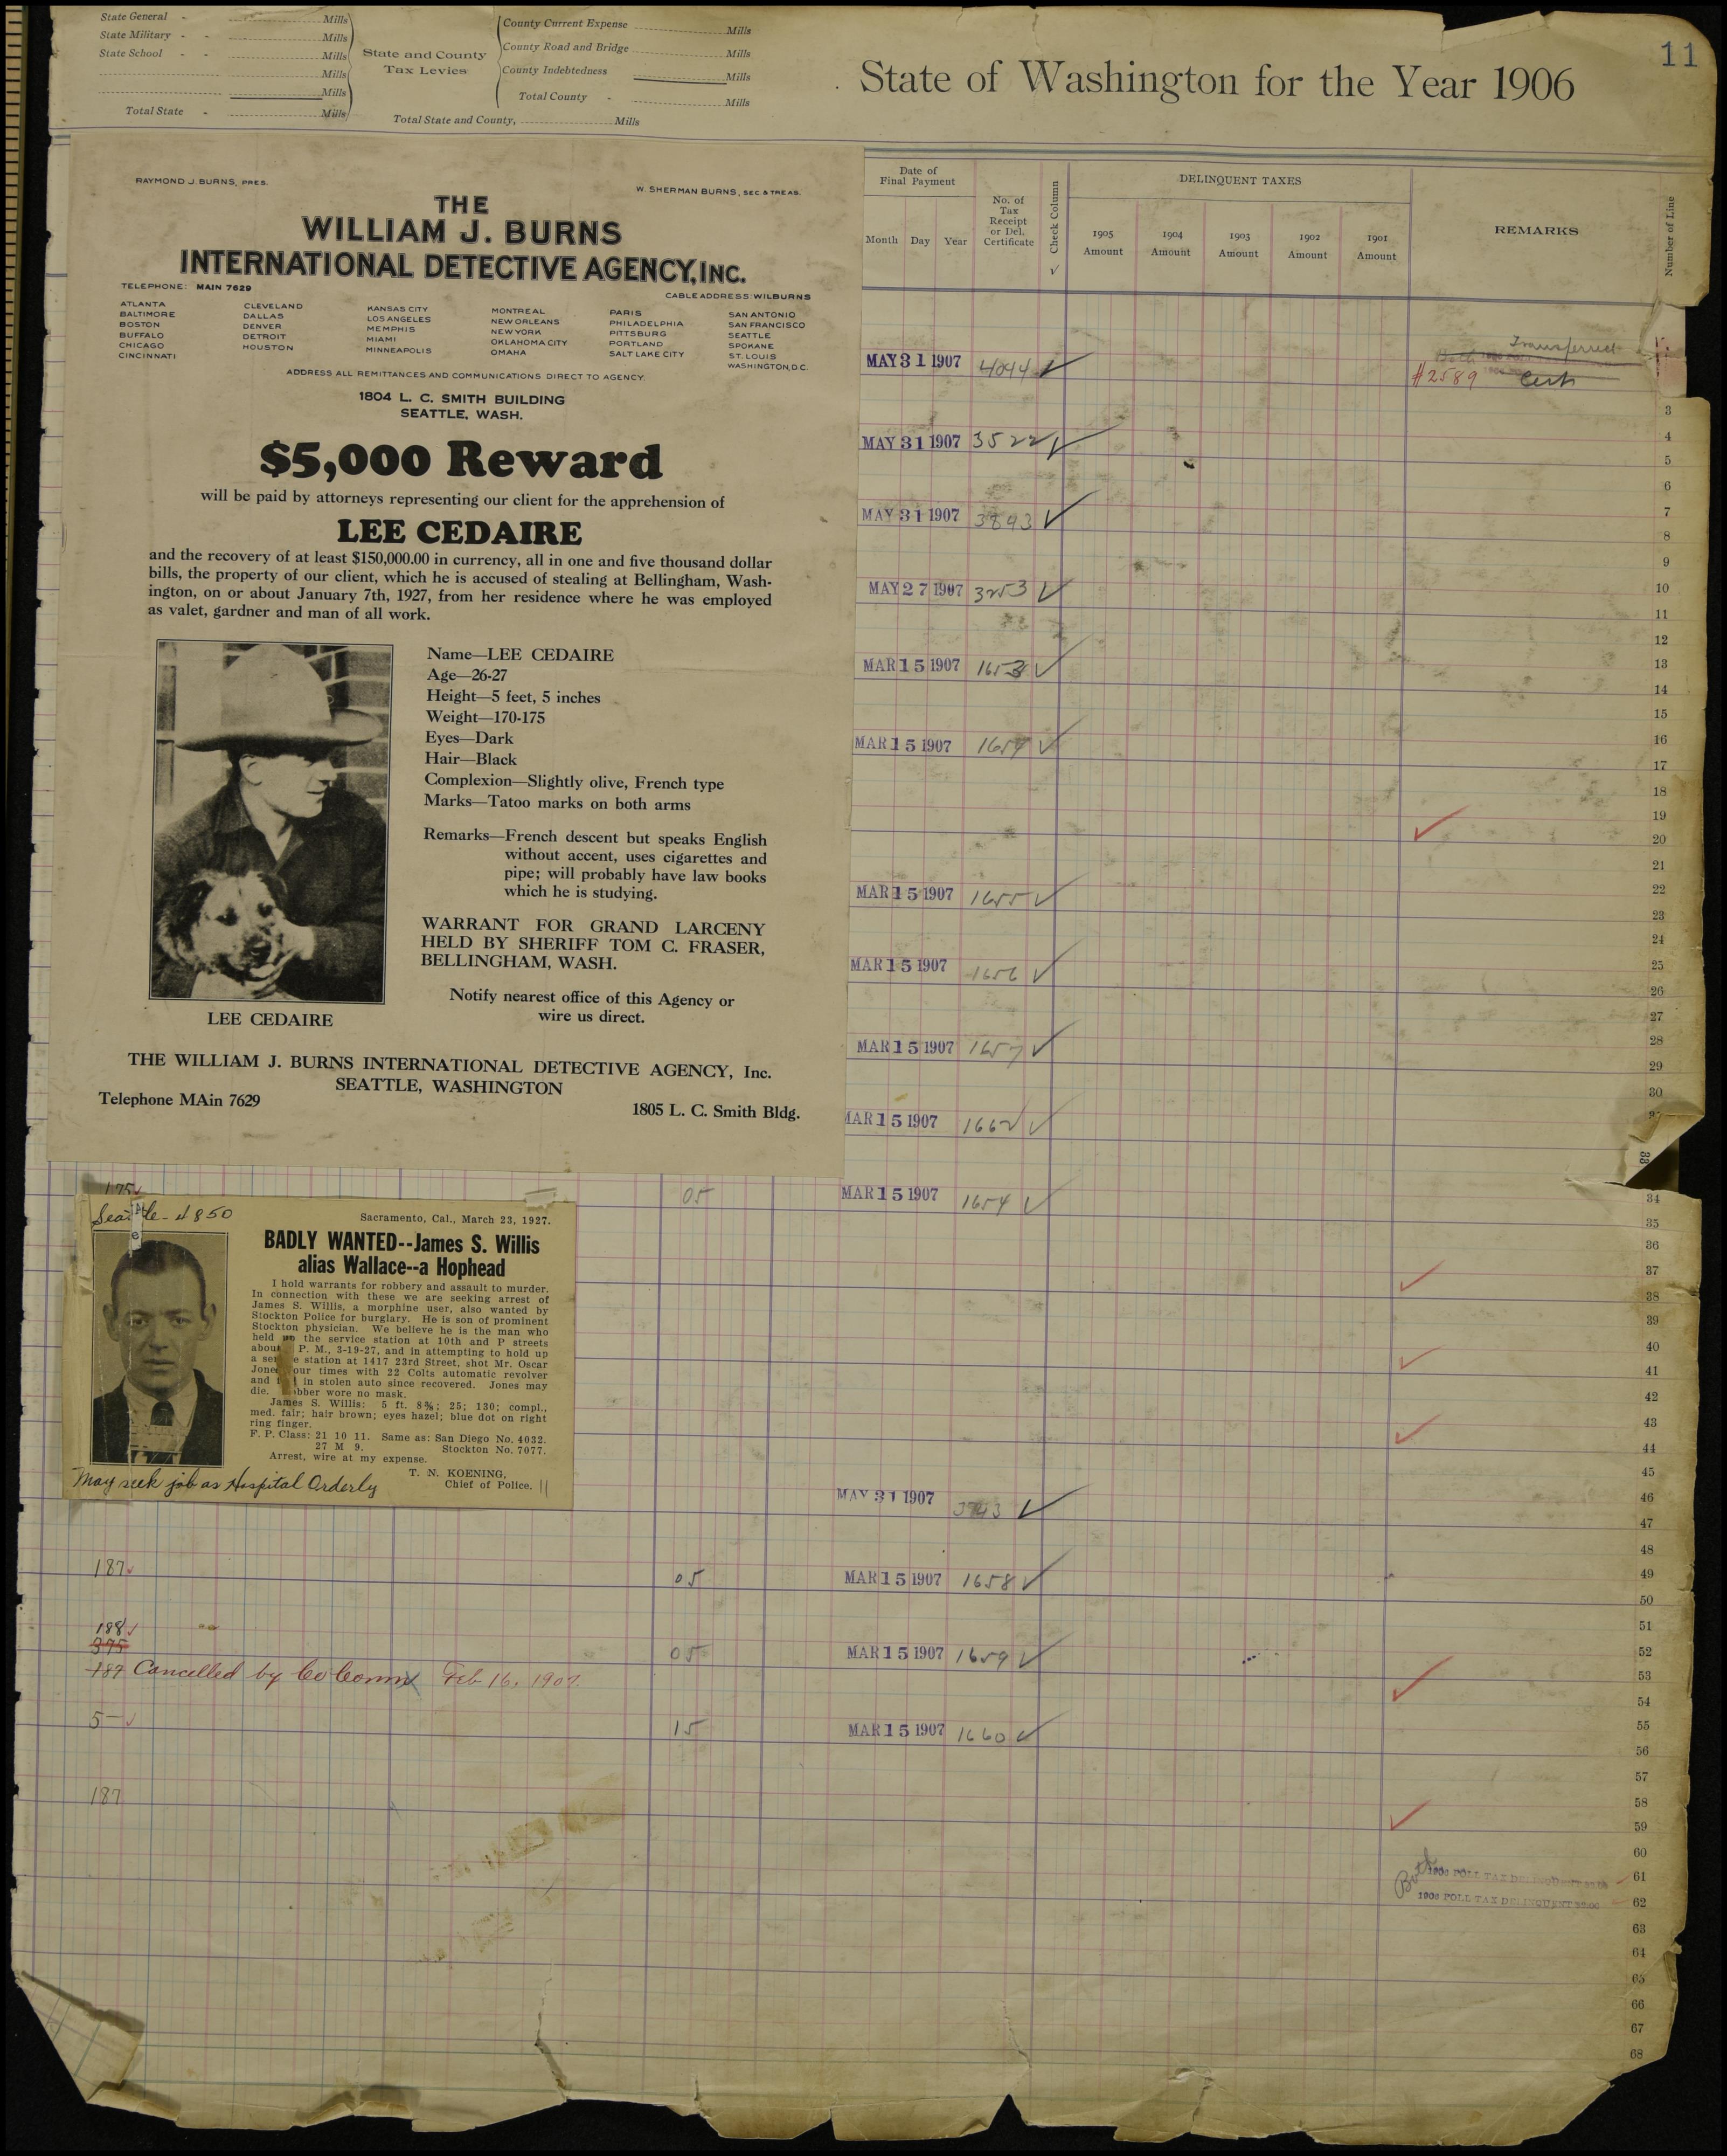 11
State General - Mills
State Military - - Mills
State School - - Mills
Mills
Mills
Total State - Mills
State and County
Tax Levies
County Current Expense Mills
County Road and Bridge Mills
County Indebtedness Mills
Total County - Mills
Total State and County, Mills
State of Washington for the Year 1906
RAYMOND J. BURNS, PRES.
W. SHERMAN BURNS, SEC & TREAS.
THE
WILLIAM J. BURNS
INTERNATIONAL DETECTIVE AGENCY, INC.
TELEPHONE: MAIN 7629
CABLE ADDRESS: WILBURNS
ATLANTA
BALTIMORE
BOSTON
BUFFALO
CHICAGO
CINCINNATI
CLEVELAND
DALLAS
DENVER
DETROIT
HOUSTON
KANSAS CITY
LOS ANGELES
MEMPHIS
MIAMI
MINNEAPOLIS
MONTREAL
NEW ORLEANS
NEW YORK
OKLAHOMA CITY
OMAHA
PARIS
PHILADELPHIA
PITTSBURG
PORTLAND
SALT LAKE CITY
SAN ANTONIO
SAN FRANCISCO
SEATTLE
SPOKANE
ST. LOUIS
WASHINGTON, D.C.
ADDRESS ALL REMITTANCES AND COMMUNICATIONS DIRECT TO AGENCY.
1804 L. C. SMITH BUILDING
SEATTLE, WASH.
$5,000 Reward
will be paid by attorneys representing our client for the apprehension of
LEE CEDAIRE
and the recovery of at least $150,000.00 in currency, all in one and five thousand dollar
bills, the property of our client, which he is accused of stealing at Bellingham, Wash-
ington, on or about January 7th, 1927, from her residence where he was employed
as valet, gardner and man of all work.
Name—LEE CEDAIRE
Age—26-27
Height—5 feet, 5 inches
Weight—170-175
Eyes—Dark
Hair—Black
Complexion—Slightly olive, French type
Marks—Tatoo marks on both arms
Remarks—French descent but speaks English
without accent, uses cigarettes and
pipe; will probably have law books
which he is studying.
WARRANT FOR GRAND LARCENY
HELD BY SHERIFF TOM C. FRASER,
BELLINGHAM, WASH.
Notify nearest office of this Agency or
wire us direct.
LEE CEDAIRE
THE WILLIAM J. BURNS INTERNATIONAL DETECTIVE AGENCY, Inc.
SEATTLE, WASHINGTON
Telephone MAin 7629
1805 L. C. Smith Bldg.
175
05
Seattle - 4850
Sacramento, Cal., March 23, 1927.
BADLY WANTED--James S. Willis
alias Wallace--a Hophead
I hold warrants for robbery and assault to murder.
In connection with these we are seeking arrest of
James S. Willis, a morphine user, also wanted by
Stockton Police for burglary. He is son of prominent
Stockton physician. We believe he is the man who
held up the service station at 10th and P streets
about P. M., 3-19-27, and in attempting to hold up
a service station at 1417 23rd Street, shot Mr. Oscar
Jones four times with 22 Colts automatic revolver
and in stolen auto since recovered. Jones may
die. Robber wore no mask.
James S. Willis: 5 ft. 8⅝; 25; 130; compl.,
med. fair; hair brown; eyes hazel; blue dot on right
ring finger.
F. P. Class: 21 10 11. Same as: San Diego No. 4032.
27 M 9. Stockton No. 7077.
Arrest, wire at my expense.
T. N. KOENING,
Chief of Police.
May seek job as Hospital Orderly
187
05
188
375
05
187 Cancelled by Co Comm Feb 16, 1907
5-
15
187
Date of
Final Payment
Month Day Year
No. of
Tax
Receipt
or Del.
Certificate
Check Column
DELINQUENT TAXES
1905
Amount
1904
Amount
1903
Amount
1902
Amount
1901
Amount
REMARKS
Number of Line
MAY 31 1907 4044 ✓
Transferred
#2589 Cert
MAY 31 1907 3522 ✓
MAY 31 1907 3843 ✓
MAY 27 1907 3253 ✓
MAR 15 1907 1653 ✓
MAR 15 1907 1654 ✓
MAR 15 1907 1655 ✓
MAR 15 1907 1656 ✓
MAR 15 1907 1657 ✓
MAR 15 1907 1662 ✓
MAR 15 1907 1654 ✓
MAY 31 1907 ✓
MAR 15 1907 1658 ✓
MAR 15 1907 1659 ✓
MAR 15 1907 1660 ✓
Both
1906 POLL TAX DELINQUENT
1906 POLL TAX DELINQUENT
3
4
5
6
7
8
9
10
11
12
13
14
15
16
17
18
19
20
21
22
23
24
25
26
27
28
29
30
33
34
35
36
37
38
39
40
41
42
43
44
45
46
47
48
49
50
51
52
53
54
55
56
57
58
59
60
61
62
63
64
65
66
67
68